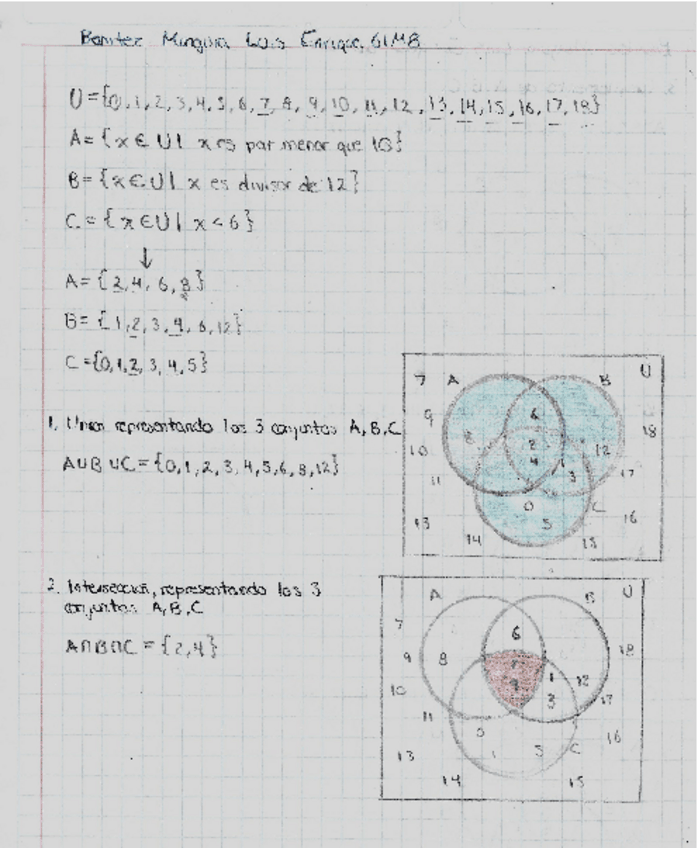 Benitez Munguia Luis Enrique, 61MB
U={0,1,2,3,4,5,6,7,8,9,10,11,12,13,14,15,16,17,18}
A={x∈U| x es par menor que 10}
B={x∈U| x es divisor de 12}
C={x∈U| x<6}
↓
A={2,4,6,8}
B={1,2,3,4,6,12}
C={0,1,2,3,4,5}
1. Union representando los 3 conjuntos A,B,C
A∪B∪C={0,1,2,3,4,5,6,8,12}
7 A B U
9 6 18
10 8 2 12
4 17
11 3
0 C
13 5 16
14 15
2. Interseccion, representando los 3
conjuntos A,B,C
A∩B∩C={2,4}
A B U
7 6
9 8 2 18
10 4 1 12
3 17
11 0 16
13 5 C
14 15